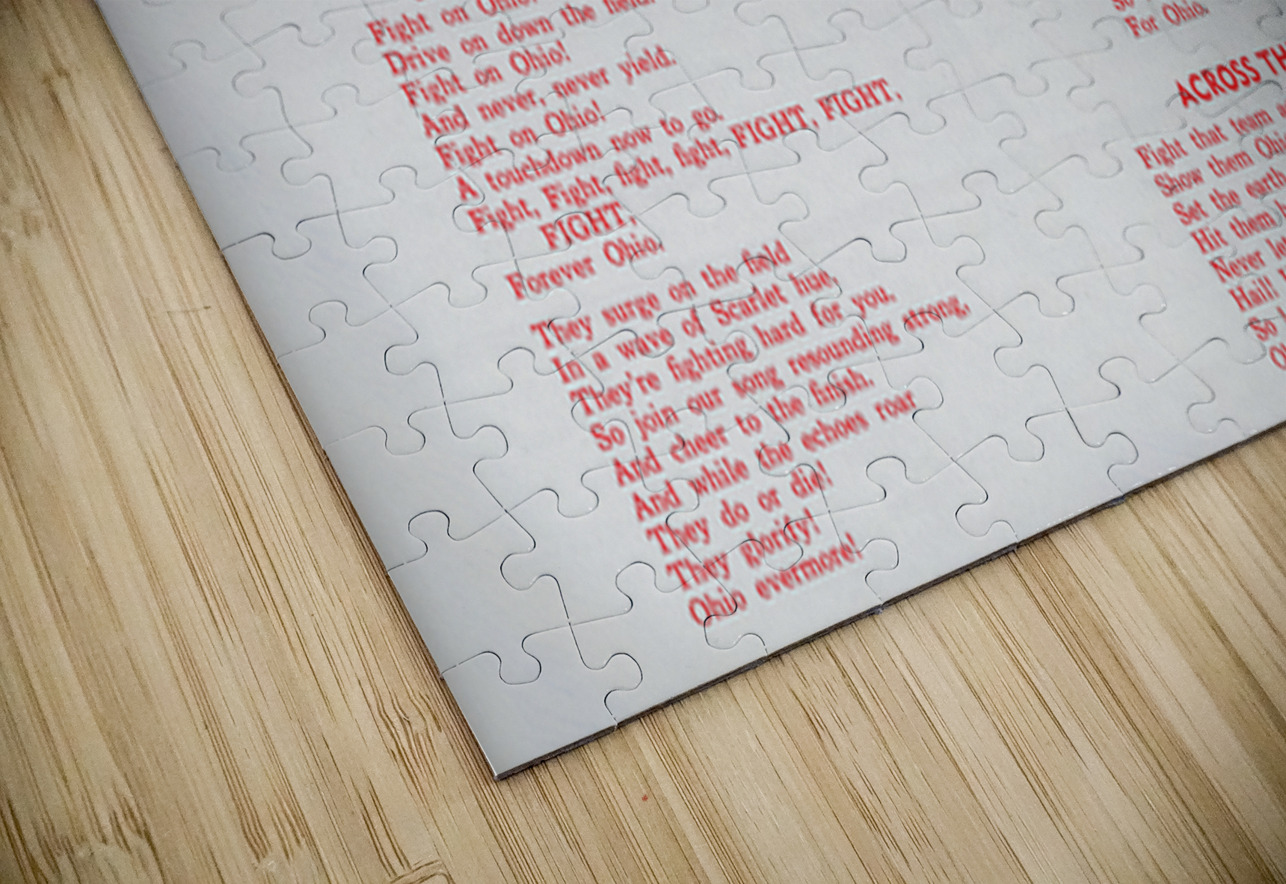 Fight on Ohio!
Drive on down the field.
Fight on Ohio!
And never, never yield.
Fight on Ohio!
A touchdown now to go.
Fight, Fight, fight, fight, FIGHT, FIGHT,
FIGHT,
Forever Ohio.
They surge on the field
In a wave of Scarlet hue,
They're fighting hard for you.
So join our song resounding strong,
And cheer to the finish.
And while the echoes roar
They do or die!
They glorify!
Ohio evermore!
So
For Ohio.
ACROSS TH
Fight that team
Show them Ohi
Set the earth
Hit them
Never le
Hail!
So